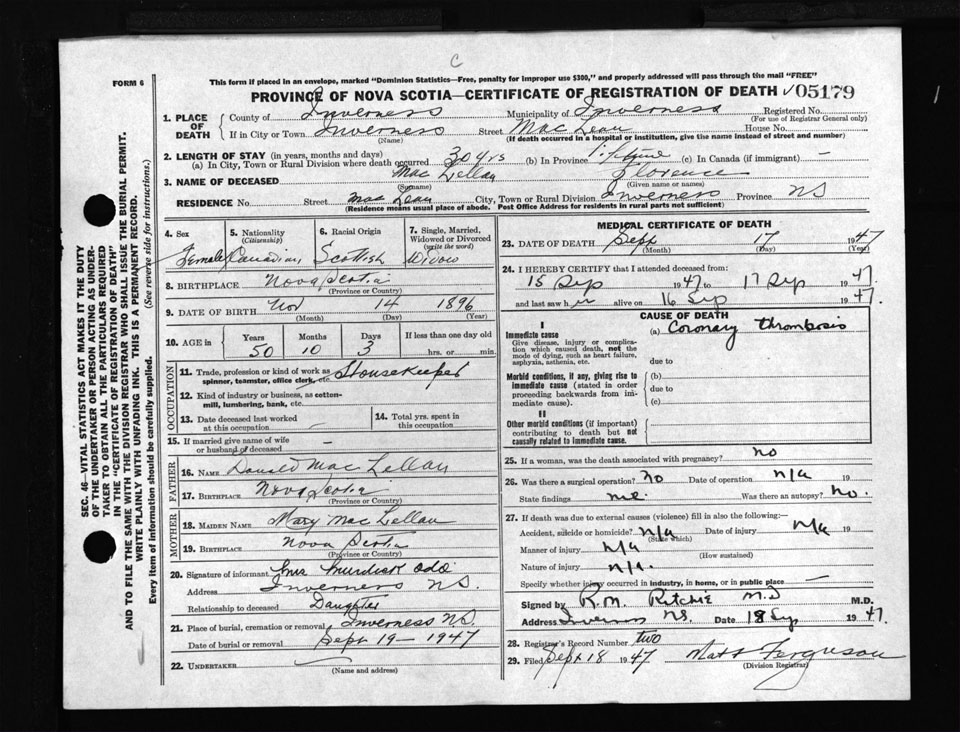 C
FORM 6
This form if placed in an envelope, marked "Dominion Statistics—Free, penalty for improper use $300," and properly addressed will pass through the mail "FREE"
PROVINCE OF NOVA SCOTIA—CERTIFICATE OF REGISTRATION OF DEATH ✓05179
1. PLACE OF DEATH { County of Inverness Municipality of Inverness Registered No.
(For use of Registrar General only)
If in City or Town Inverness Street Mac Lean House No.
(Name) (If death occurred in a hospital or institution, give the name instead of street and number)
2. LENGTH OF STAY (in years, months and days)
(a) In City, Town or Rural Division where death occurred 30 yrs (b) In Province lifetime (c) In Canada (if immigrant) —
3. NAME OF DECEASED Mac Lellan Florence
(Surname) (Given name or names)
RESIDENCE No. Street Mac Lean City, Town or Rural Division Inverness Province NS
(Residence means usual place of abode. Post Office Address for residents in rural parts not sufficient)
4. Sex
Female
5. Nationality
(Citizenship)
Canadian
6. Racial Origin
Scottish
7. Single, Married, Widowed or Divorced
(write the word)
Widow
8. BIRTHPLACE Nova Scotia
(Province or Country)
9. DATE OF BIRTH Nov 14 1896
(Month) (Day) (Year)
10. AGE in { Years Months Days If less than one day
50 10 3 hrs. or min.
OCCUPATION
11. Trade, profession or kind of work as spinner, teamster, office clerk, etc. Housekeeper
12. Kind of industry or business, as cotton-mill, lumbering, bank, etc.
13. Date deceased last worked at this occupation —
14. Total yrs. spent in this occupation
15. If married give name of wife or husband of deceased —
FATHER
16. NAME Donald Mac Lellan
17. BIRTHPLACE Nova Scotia
(Province or Country)
MOTHER
18. MAIDEN NAME Mary Mac Lellan
19. BIRTHPLACE Nova Scotia
(Province or Country)
20. Signature of informant Mrs Murdick
Address Inverness NS.
Relationship to deceased Daughter
21. Place of burial, cremation or removal Inverness NS.
Date of burial or removal Sept 19 - 1947
22. UNDERTAKER
(Name and address)
MEDICAL CERTIFICATE OF DEATH
23. DATE OF DEATH Sept 17 1947
(Month) (Day) (Year)
24. I HEREBY CERTIFY that I attended deceased from:
15 Sep 1947 to 17 Sep 1947
and last saw her alive on 16 Sep 1947.
CAUSE OF DEATH
I
Immediate cause
Give disease, injury or complication which caused death, not the mode of dying, such as heart failure, asphyxia, asthenia, etc.
(a) Coronary thrombosis
due to
Morbid conditions, if any, giving rise to immediate cause (stated in order proceeding backwards from immediate cause).
(b)
due to
(c)
II
Other morbid conditions (if important) contributing to death but not causally related to immediate cause.
25. If a woman, was the death associated with pregnancy? no
26. Was there a surgical operation? no Date of operation n/a
State findings Was there an autopsy? no.
27. If death was due to external causes (violence) fill in also the following:—
Accident, suicide or homicide? n/a Date of injury n/a 19
(State which)
Manner of injury n/a
(How sustained)
Nature of injury n/a.
Specify whether injury occurred in industry, in home, or in public place —
Signed by R.M. Ritchie M.D M.D.
Address Inverness NS. Date 18 Sep 1947.
28. Registrar's Record Number two
29. Filed Sept 18 1947 Matt Ferguson
(Division Registrar)
SEC. 46—VITAL STATISTICS ACT MAKES IT THE DUTY
OF THE UNDERTAKER OR PERSON ACTING AS UNDER-
TAKER TO OBTAIN ALL THE PARTICULARS REQUIRED
IN THE "CERTIFICATE OF REGISTRATION OF DEATH"
AND TO FILE THE SAME WITH THE DIVISION REGISTRAR WHO SHALL ISSUE THE BURIAL PERMIT.
WRITE PLAINLY WITH UNFADING INK. THIS IS A PERMANENT RECORD.
Every item of information should be carefully supplied. (See reverse side for instructions.)